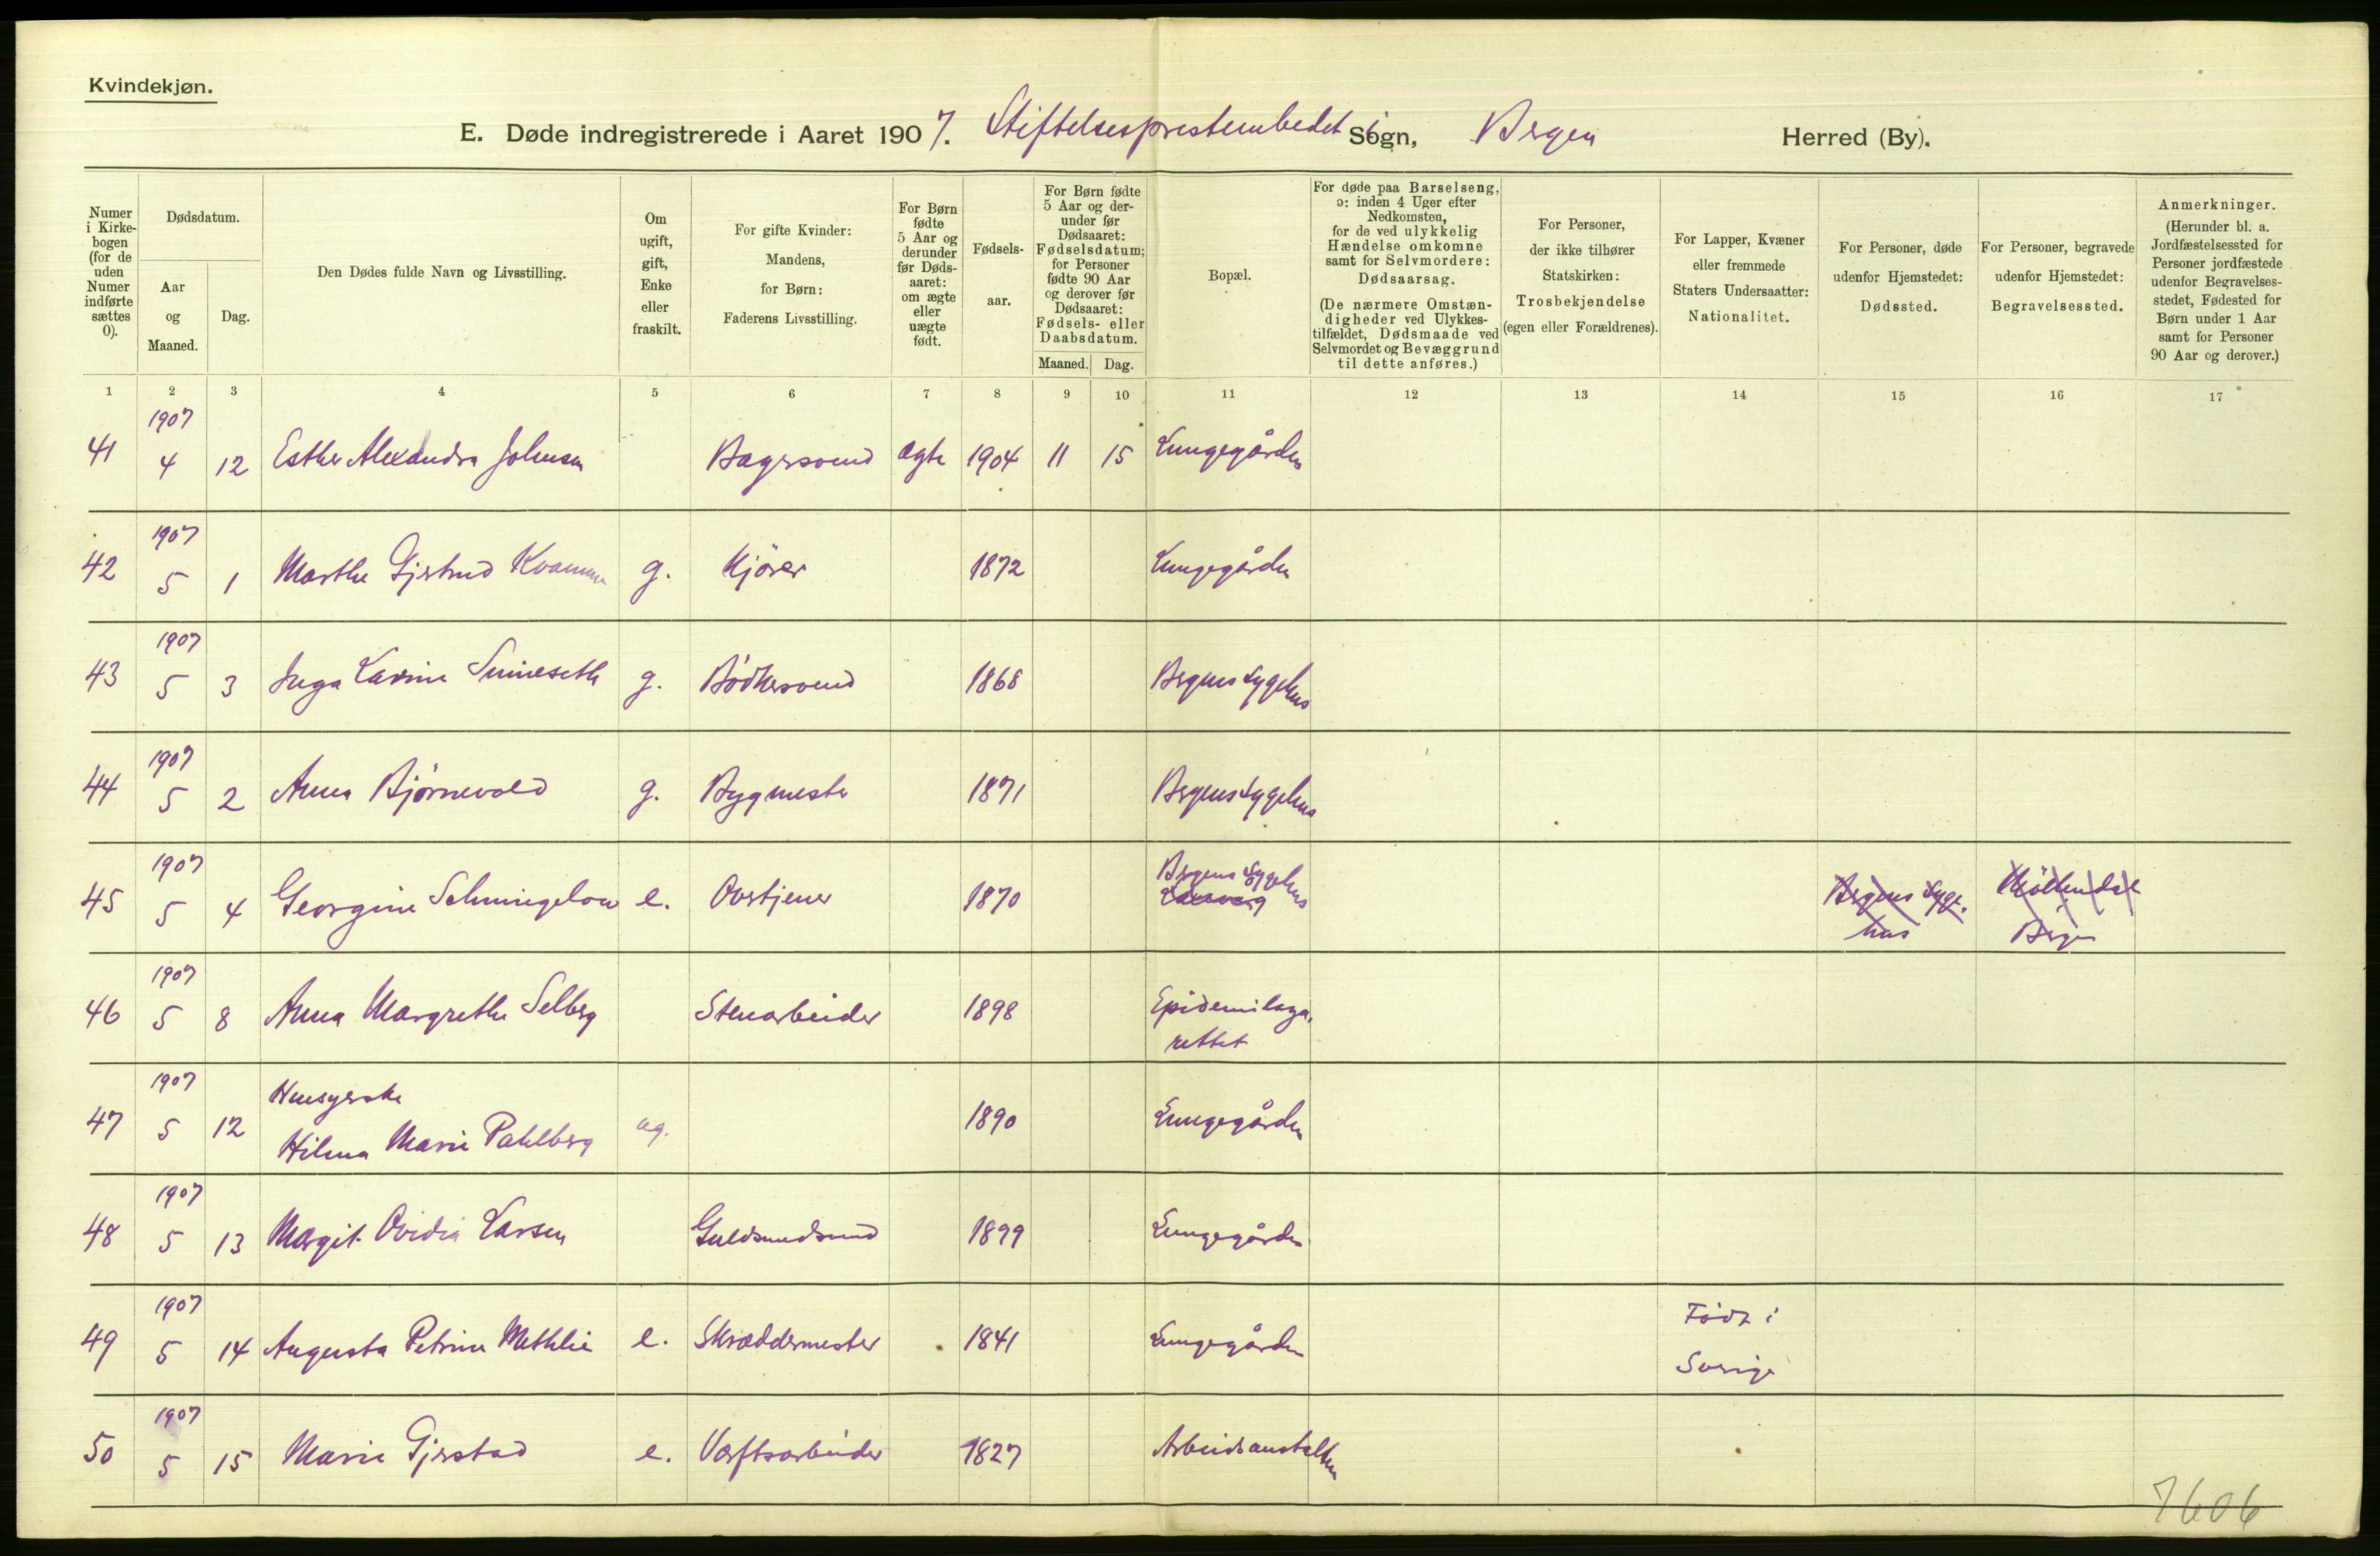 Kvindekjøn.
E. Døde indregistrerede i Aaret 1907. Stiftelsesprestembedet i Sogn, Bergen Herred (By).
Numer i Kirkebogen (for de uden Numer indførte sættes 0).
Dødsdatum.
Aar og Maaned.
Dag.
Den Dødes fulde Navn og Livsstilling.
Om ugift, gift, Enke eller fraskilt.
For gifte Kvinder: Mandens, for Børn: Faderens Livsstilling.
For Børn fødte 5 Aar og derunder før Dødsaaret: om ægte eller uægte født.
Fødselsaar.
For Børn fødte 5 Aar og derunder før Dødsaaret: Fødselsdatum; for Personer fødte 90 Aar og derover før Dødsaaret: Fødsels- eller Daabsdatum.
Maaned. Dag.
Bopæl.
For døde paa Barselseng, ɔ: inden 4 Uger efter Nedkomsten, for de ved ulykkelig Hændelse omkomne samt for Selvmordere: Dødsaarsag. (De nærmere Omstændigheder ved Ulykkestilfældet, Dødsmaade ved Selvmordet og Bevæggrund til dette anføres.)
For Personer, der ikke tilhører Statskirken: Trosbekjendelse (egen eller Forældrenes).
For Lapper, Kvæner eller fremmede Staters Undersaatter: Nationalitet.
For Personer, døde udenfor Hjemstedet: Dødssted.
For Personer, begravede udenfor Hjemstedet: Begravelsessted.
Anmerkninger. (Herunder bl. a. Jordfæstelsessted for Personer jordfæstede udenfor Begravelsesstedet, Fødested for Børn under 1 Aar samt for Personer 90 Aar og derover.)
1 2 3 4 5 6 7 8 9 10 11 12 13 14 15 16 17
41 1907 4 12 Esther Alexandra Johnsen Bagersvend ægte 1904 11 15 Lungegården
42 1907 5 1 Marthe Gjertrud Kvamme g. Kjører 1872 Lungegården
43 1907 5 3 Inga Lavine g. Bødkersvend 1868 Bergens Sygehus
44 1907 5 2 Anna Bjørnevold g. Bygmester 1871 Bergens Sygehus
45 1907 5 4 Georgine Schmingelow e. Overtjener 1870 Bergens Sygehus Bergens Sygehus Møllendal Bergen
46 1907 5 8 Anna Margrethe Selberg Stenarbeider 1898 Epidemilazarettet
47 1907 5 12 Hussyerske
Hilma Marie Pahlberg ug. 1890 Lungegården
48 1907 5 13 Margit Ovidia Larsen Guldsmedsvend 1899 Lungegården
49 1907 5 14 Augusta Petrine Methlie e. Skræddermester 1841 Lungegården Född i Sverige
50 1907 5 15 Marie Gjerstad e. Værftsarbeider 1827 Arbeidsanstalten
7606